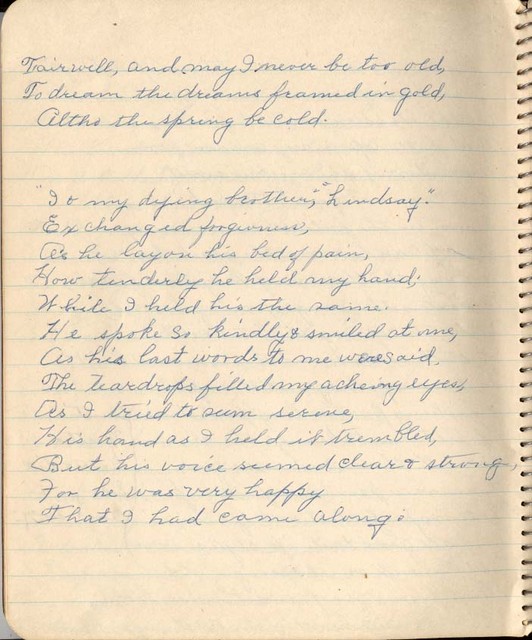 Fairwell, and may I never be too old,
To dream the dreams framed in gold,
Altho the spring be cold.
"I & my dying brother," "Lindsay".
Exchanged forgivness,
As he lay on his bed of pain,
How tenderly he held my hand;
While I held his the same.
He spoke so kindly & smiled at me,
As his last words to me were said,
The teardrops filled my acheing eyes,
As I tried to seem serene,
His hand as I held it trembled,
But his voice seemed clear & strong,
For he was very happy
That I had came along.